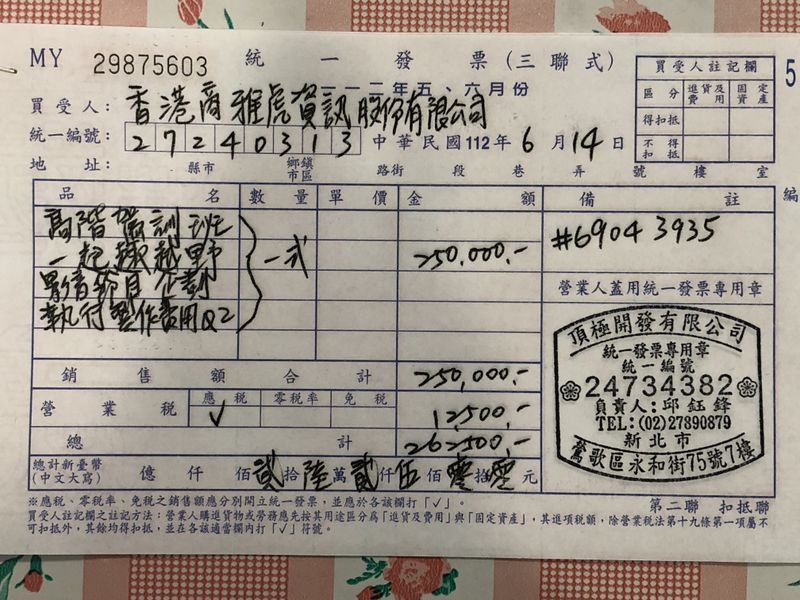 MY 29875603 統一發票(三聯式)
一一二年五、六月份
買受人: 香港商雅虎資訊股份有限公司
統一編號: 27240313 中華民國112年6月14日
地址: 縣市 鄉鎮市區 路街 段 巷 弄 號 樓 室
買受人註記欄
區分 進貨及費用 固定資產
得扣抵
不得扣抵
5
編
品名 數量 單價 金額 備註
高階 訓班
一起 越野 一式 250,000.- #6904 3935
影音節目企劃
執行製作費用Q2
營業人蓋用統一發票專用章
頂極開發有限公司
統一發票專用章
統一編號
24734382
負責人:邱鈺鋒
TEL:(02)27890879
新北市
鶯歌區永和街75號7樓
銷售額合計 250,000.-
營業稅 應稅 零稅率 免稅
✓ 12500.-
總計 262500.-
總計新臺幣(中文大寫) 億 仟 佰 貳拾 陸萬 貳仟 伍佰 零拾 零元
※應稅、零稅率、免稅之銷售額應分別開立統一發票,並應於各該欄打「✓」。
買受人註記欄之註記方法:營業人購進貨物或勞務應先按其用途區分為「進貨及費用」與「固定資產」,其進項稅額,除營業稅法第十九條第一項屬不
可扣抵外,其餘均得扣抵,並在各該適當欄內打「✓」符號。
第二聯 扣抵聯